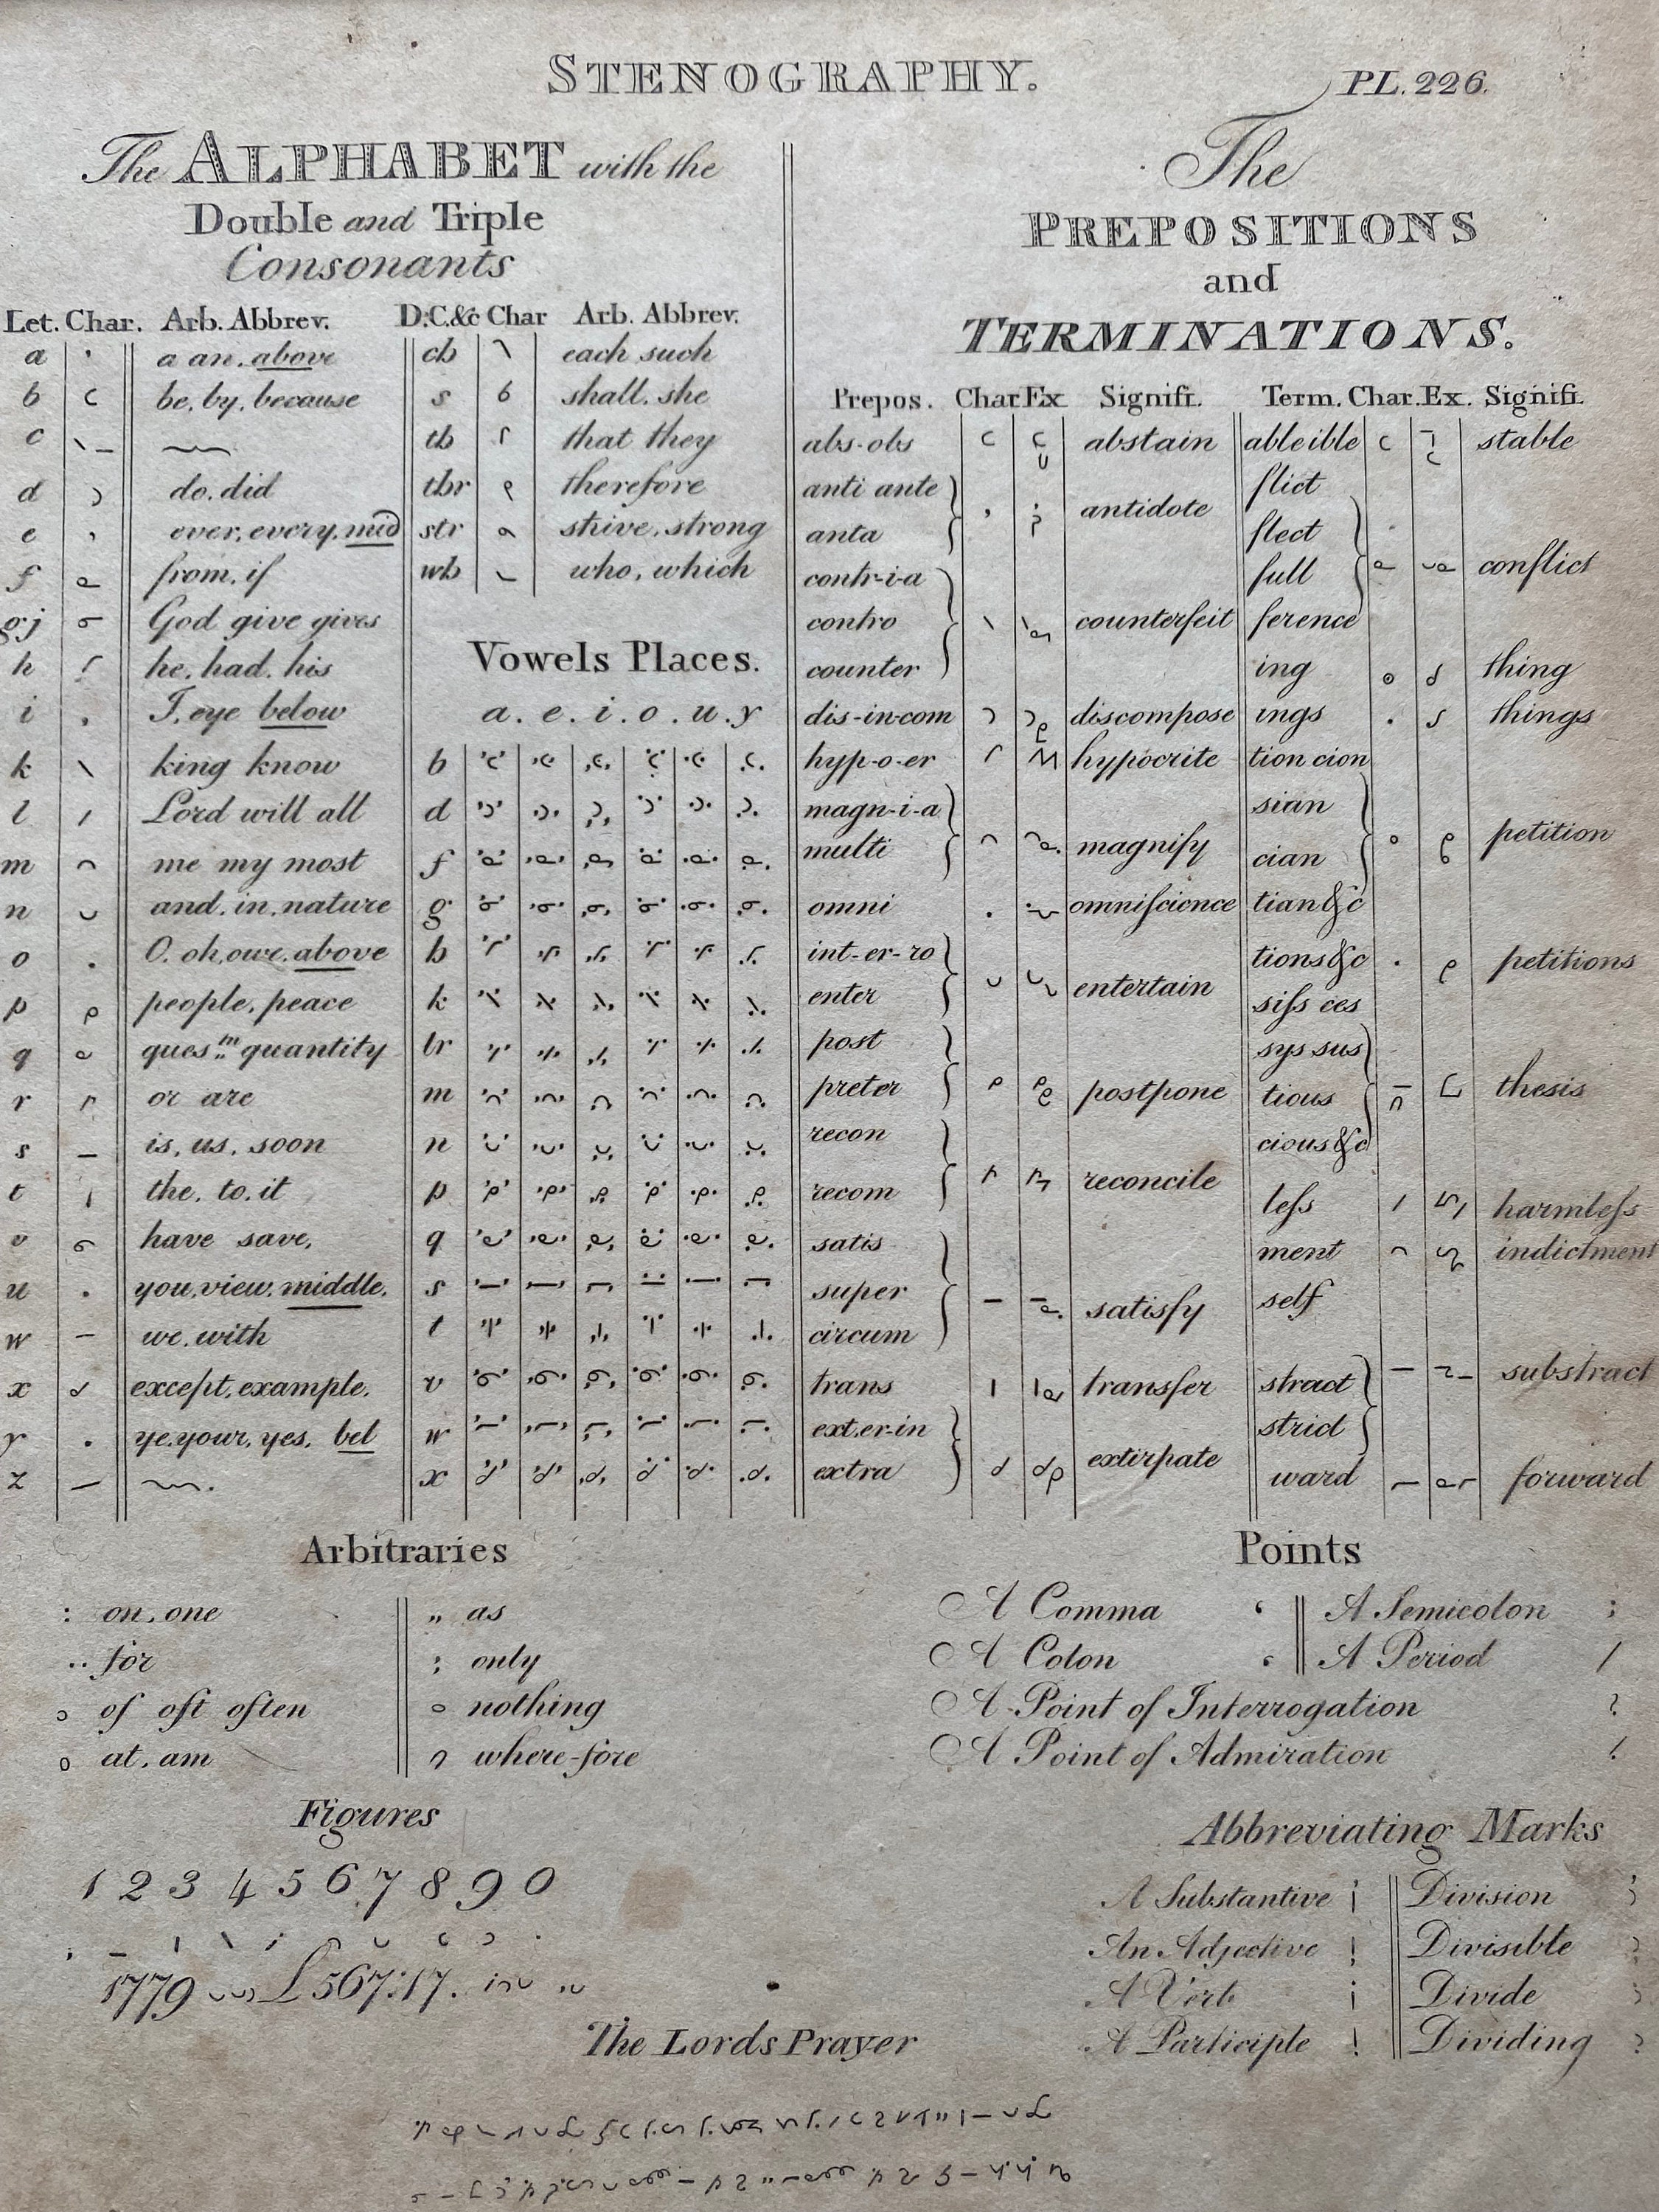 STENOGRAPHY.
PL. 226.
The ALPHABET with the
Double and Triple
Consonants
Let. Char. Arb. Abbrev.
a a an. above
b be, by, because
c
d do. did
e ever, every, mid
f from, if
g.j God give gives
h he, had, his
i I, eye below
k king know
l Lord will all
m me my most
n and, in, nature
o O, oh, owe, above
p people, peace
q ques.tn quantity
r or are
s is, us, soon
t the, to, it
v have save,
u you, view, middle.
w we, with
x except, example.
y ye, your, yes, bel
z
D.C.&c Char Arb. Abbrev.
ch each such
s shall, she
th that they
thr therefore
str strive, strong
wh who, which
Vowels Places.
a. e. i. o. u. y
b
d
f
g
h
k
lr
m
n
p
q
s
t
v
w
x
The
PREPOSITIONS
and
TERMINATIONS.
Prepos. Char Ex Signifi.
abs-obs abstain
anti ante
anta antidote
contr-i-a
contro counterfeit
counter
dis-in-com discompose
hyp-o-er hypocrite
magn-i-a
multi magnify
omni omniscience
int-er-ro
enter entertain
post
preter postpone
recon
recom reconcile
satis
super satisfy
circum
trans transfer
ext.er-in
extra extirpate
Term. Char. Ex. Signifi.
able ible stable
flict
flect
full conflict
ference
ing thing
ings things
tion cion
sian
cian petition
tian &c
tions &c petitions
siſs ces
sys sus
tious thesis
cious &c
leſs harmleſs
ment indictment
self
stract substract
strid
ward forward
Arbitraries
: on, one
.. for
of oft often
at, am
„ as
; only
o nothing
where-fore
Points
A Comma
A Colon
A Semicolon ;
A Period /
A Point of Interrogation ?
A Point of Admiration
Figures
1 2 3 4 5 6 7 8 9 0
1779 £567:17.
Abbreviating Marks
A Substantive
An Adjective
A Verb
A Participle
Division
Divisible
Divide
Dividing
The Lords Prayer